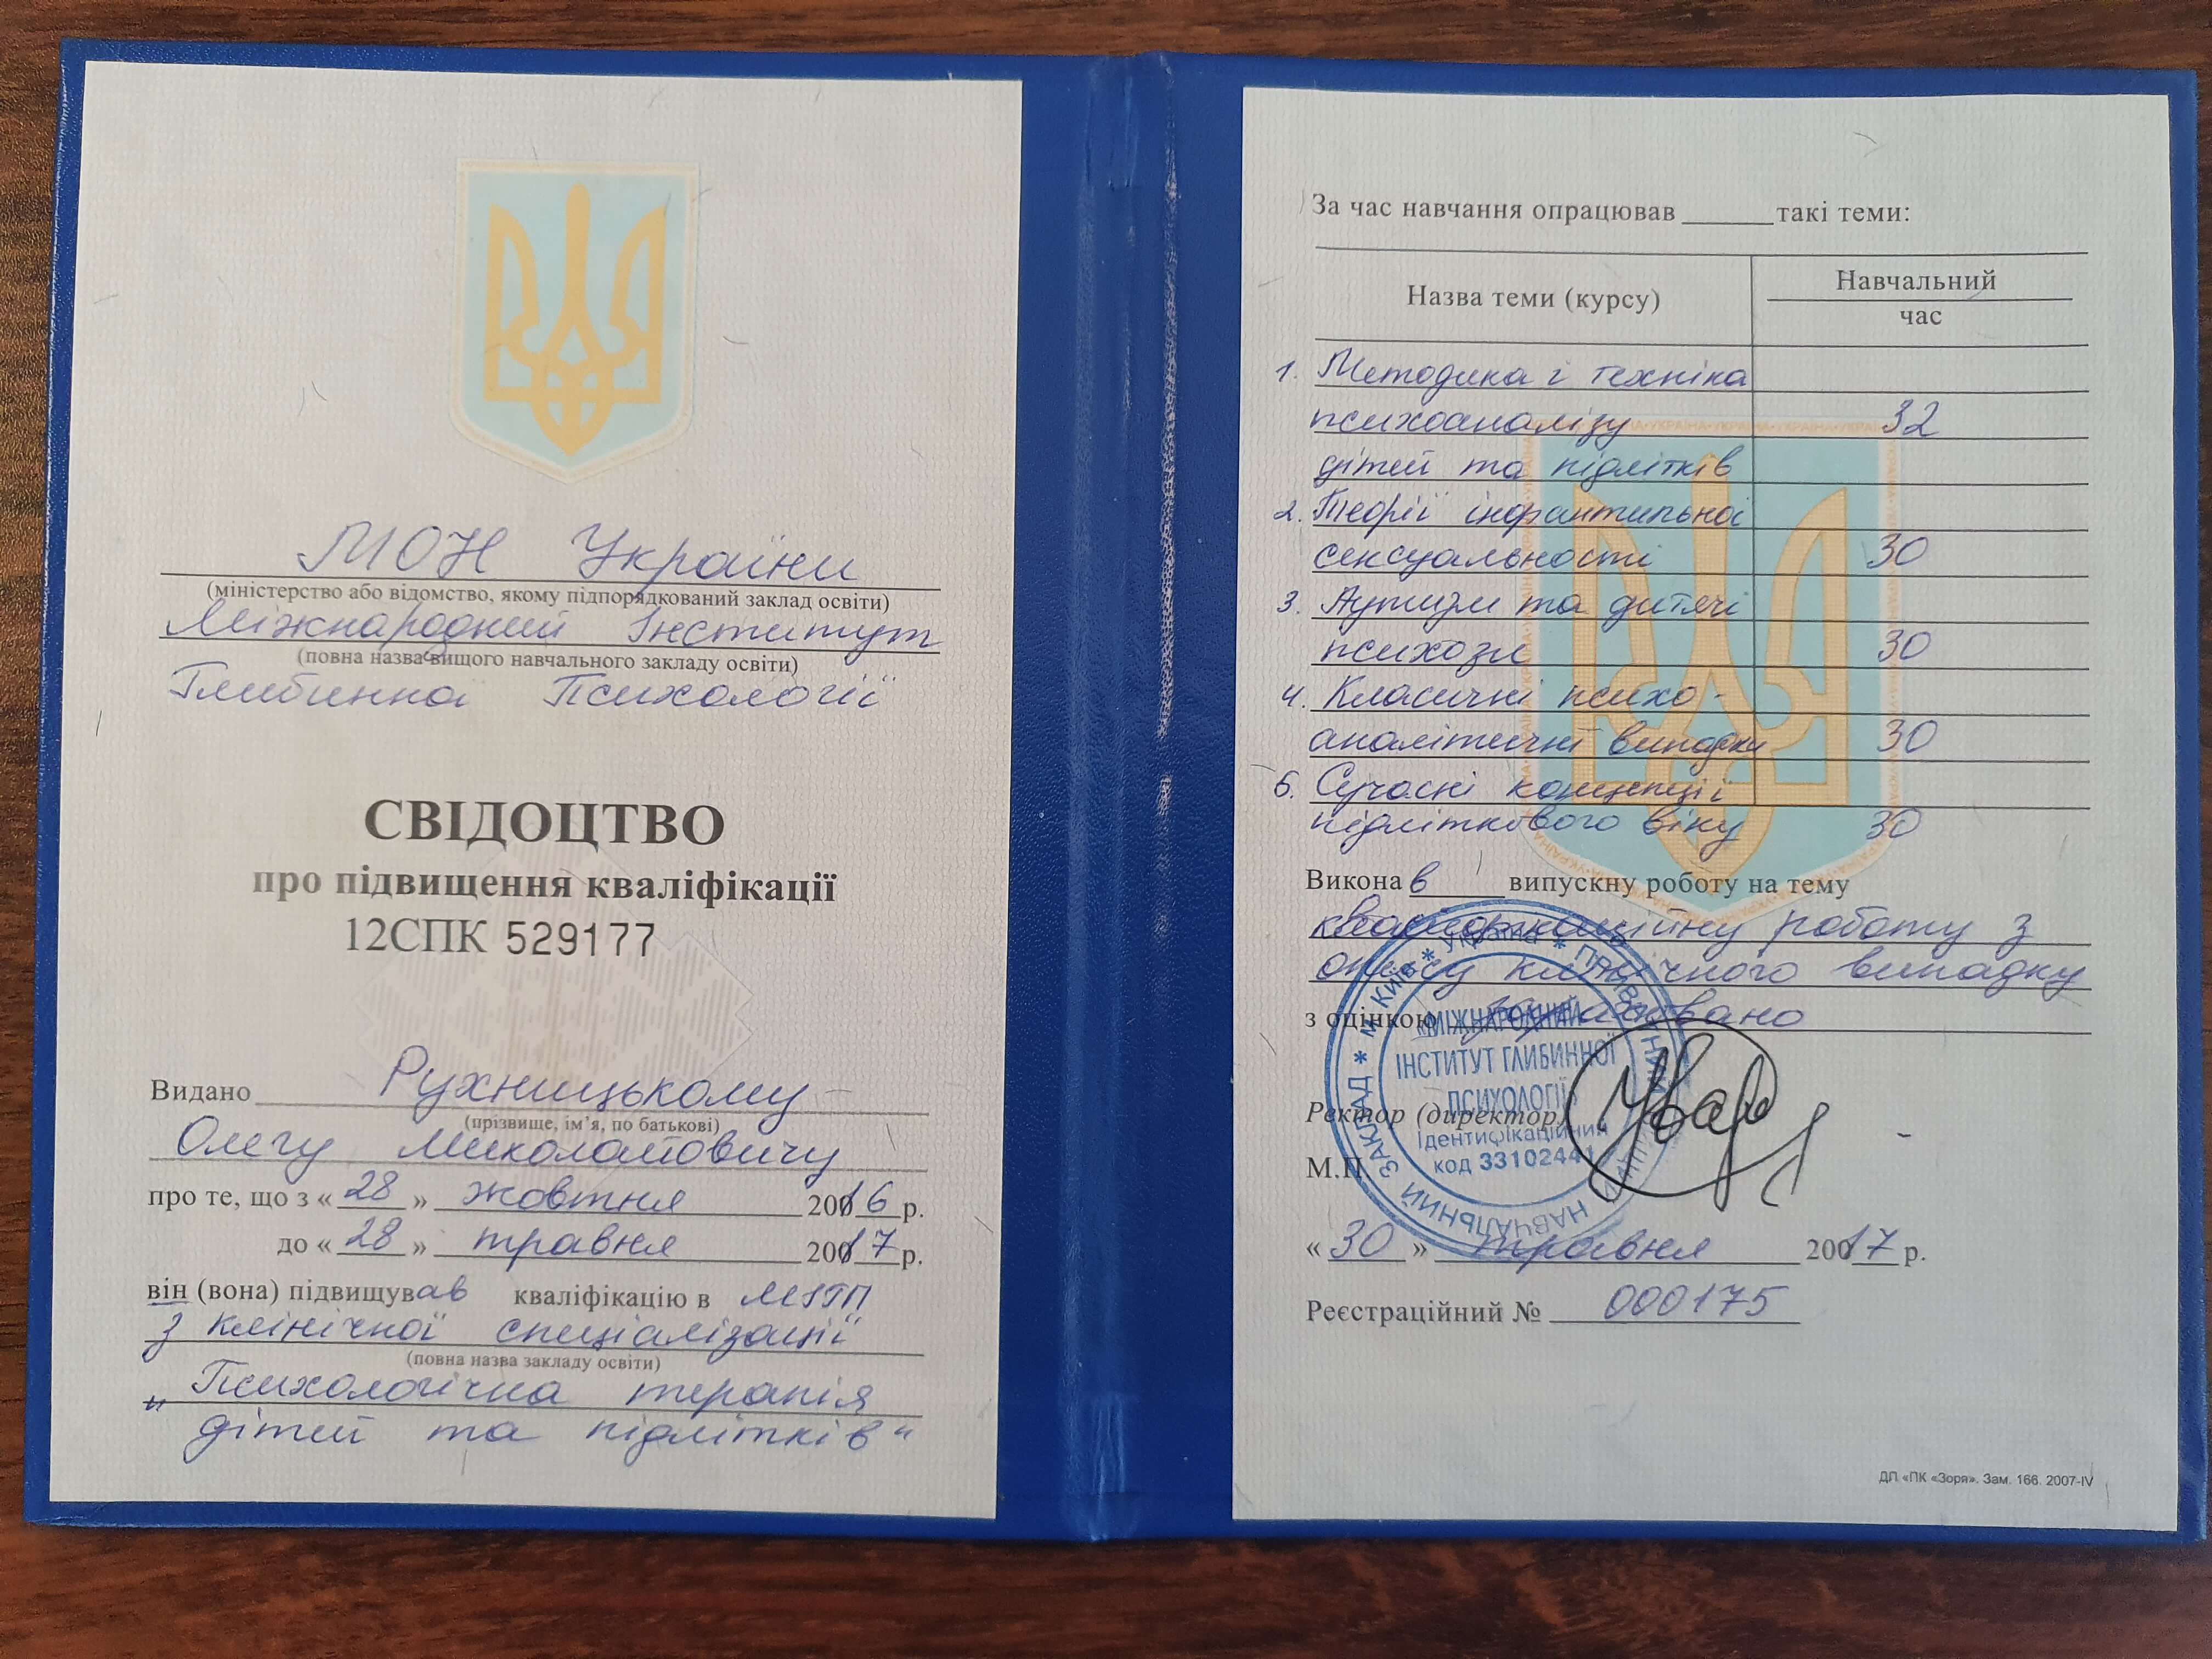 МОН України
(міністерство або відомство, якому підпорядкований заклад освіти)
Міжнародний Інститут
(повна назва вищого навчального закладу освіти)
Глибинної Психології
СВІДОЦТВО
про підвищення кваліфікації
12СПК 529177
Видано Рухницькому
(прізвище, ім’я, по батькові)
Олегу Миколайовичу
про те, що з «28» жовтня 2016 р.
до «28» травня 2017 р.
він (вона) підвищував кваліфікацію в МІГП
з клінічної спеціалізації
(повна назва закладу освіти)
„Психологічна терапія
дітей та підлітків“
За час навчання опрацював такі теми:
Назва теми (курсу) Навчальний час
1. Методика і техніка
психоаналізу 32
дітей та підлітків
2. Теорії інфантильної
сексуальності 30
3. Аутизм та дитячі
психози 30
4. Класичні психо-
аналітичні випадки 30
5. Сучасні концепції
підліткового віку 30
Виконав випускну роботу на тему
кваліфікаційну роботу з
опису клінічного випадку
з оцінкою зараховано
Ректор (директор)
М.П.
м. Київ * Україна * ПРИВАТНИЙ ВИЩИЙ НАВЧАЛЬНИЙ ЗАКЛАД *
«МІЖНАРОДНИЙ
ІНСТИТУТ ГЛИБИННОЇ
ПСИХОЛОГІЇ»
Ідентифікаційний
код 33102441
«30» травня 2017 р.
Реєстраційний № 000175
ДП «ПК «Зоря». Зам. 166. 2007-IV